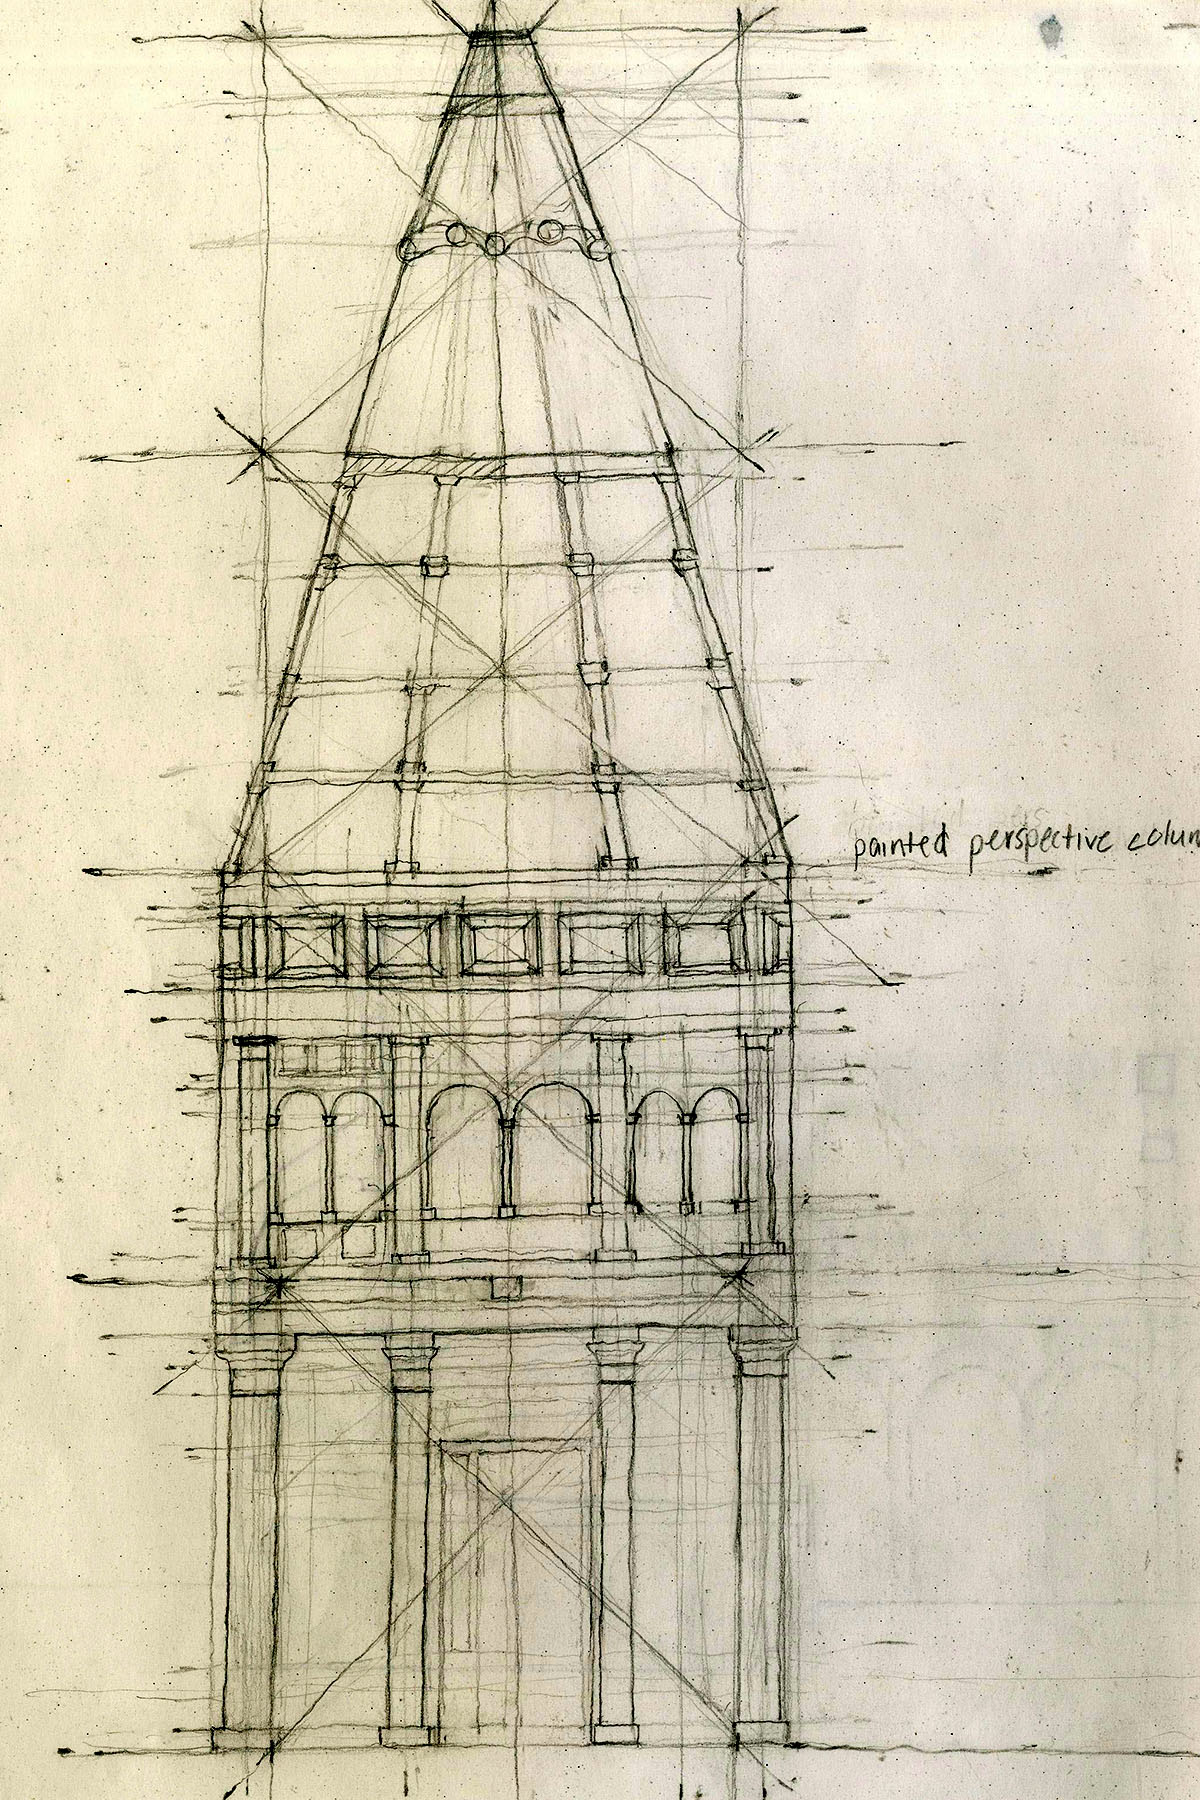 painted perspective colum